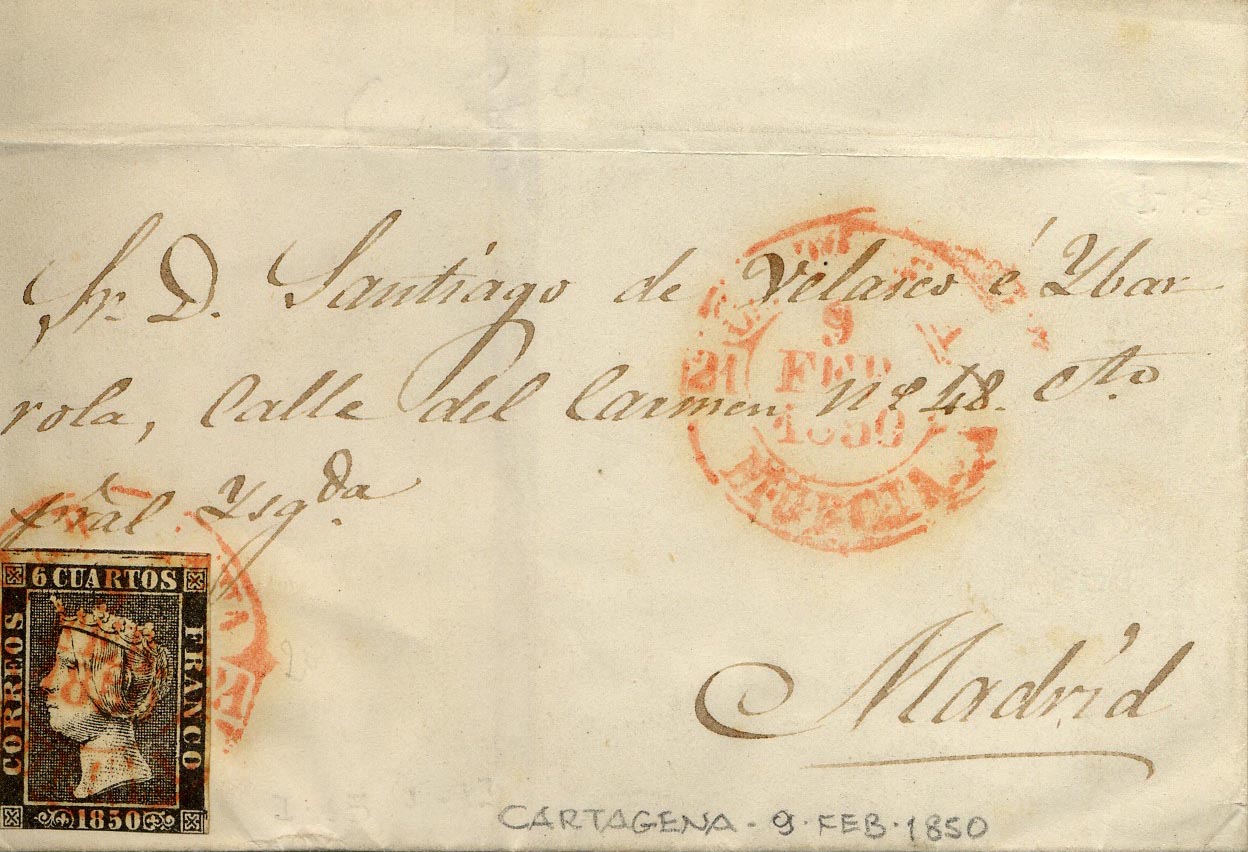 Sr. D. Santiago de Velasco é Ybar
rola, Calle del Carmen nº 48. Cto.
pral Ysqda.
Madrid
9
FEB
1850
21
MURCIA
6 CUARTOS
CORREOS
FRANCO
1850
21
CARTAGENA - 9 - FEB - 1850